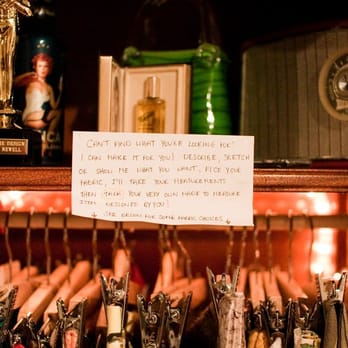 CAN'T FIND WHAT YOU'RE LOOKING FOR?
I CAN MAKE IT FOR YOU! DESCRIBE, SKETCH
OR SHOW ME WHAT YOU WANT, PICK YOUR
FABRIC, I'LL TAKE YOUR MEASUREMENTS
THEN TADA! YOUR VERY OWN MADE TO MEASURE
ITEM DESIGNED BY YOU!
SEE BELOW FOR SOME FABRIC CHOICES
DESIGN
NEWELL